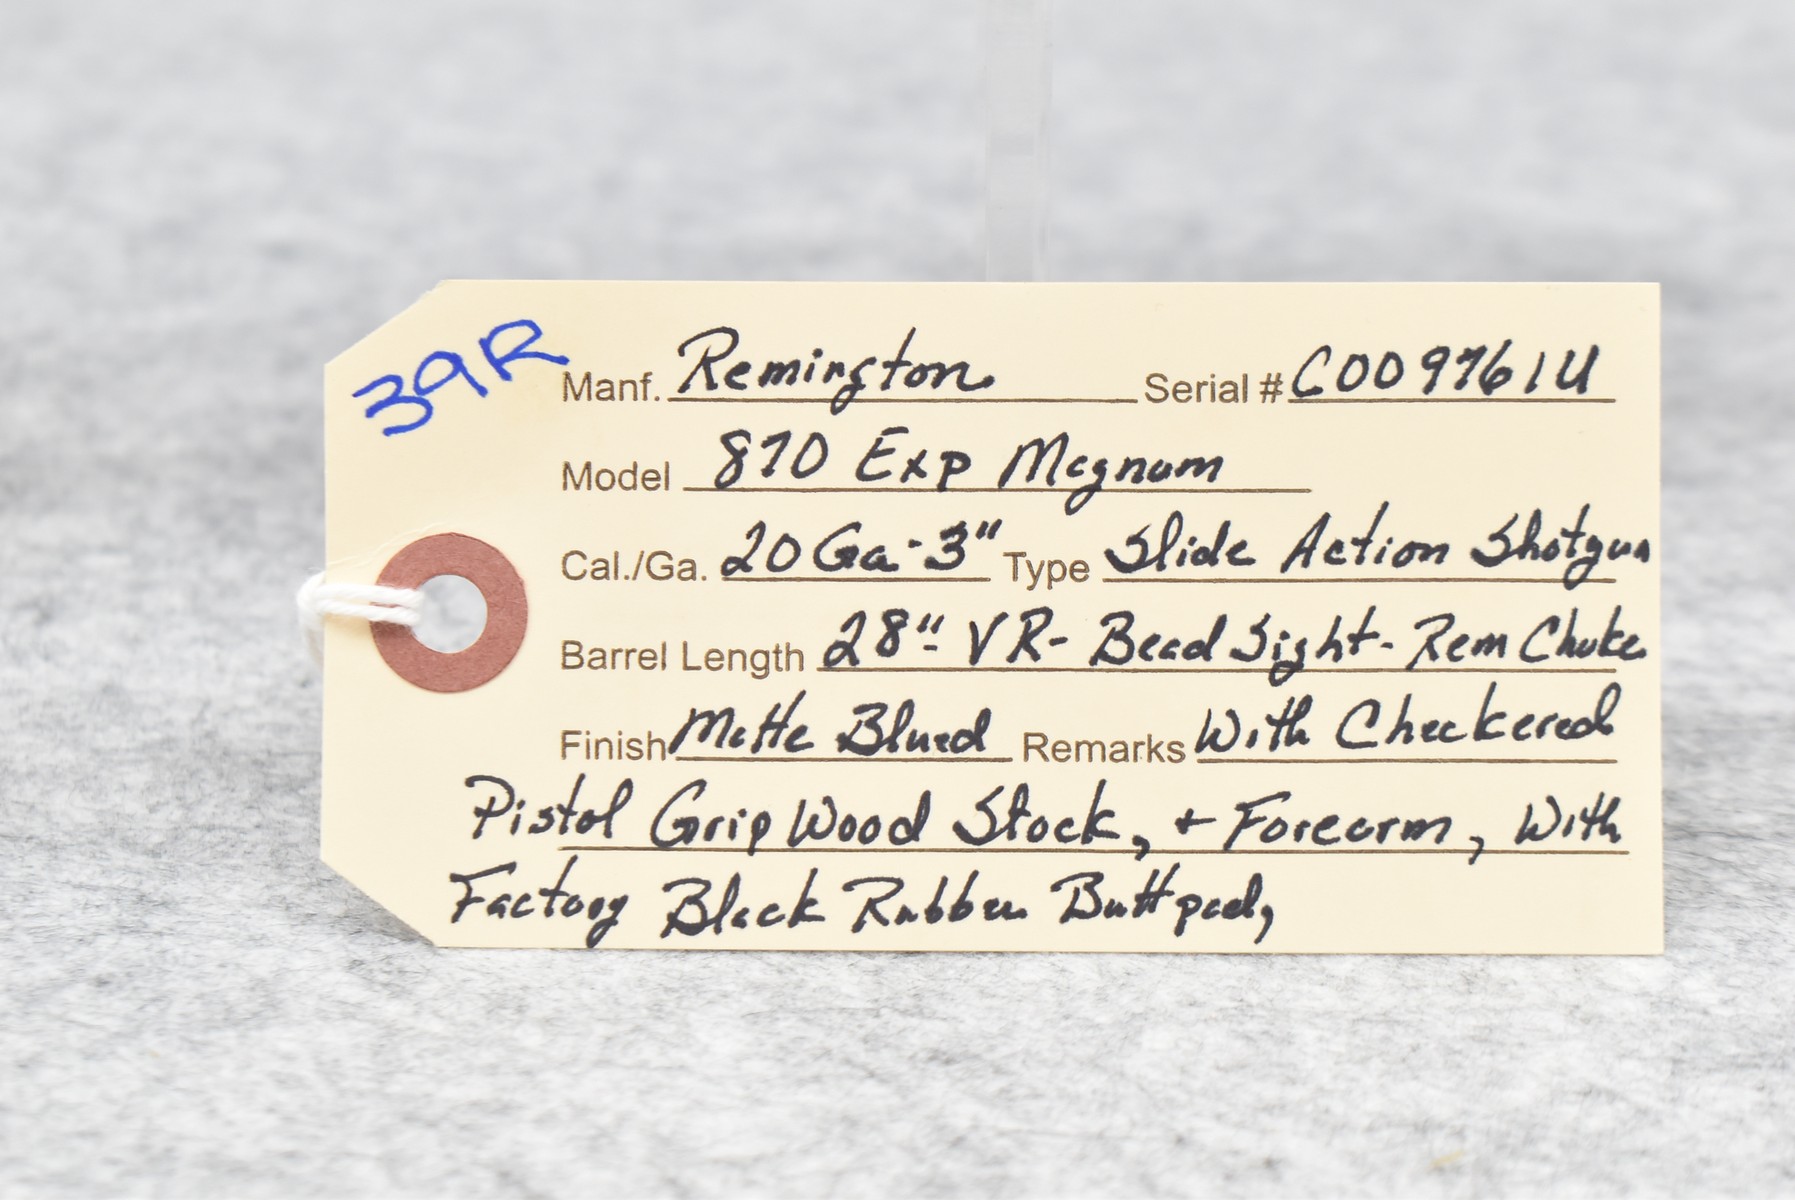 39R
Manf. Remington Serial # C009761U
Model 870 Exp Magnum
Cal./Ga. 20 Ga - 3" Type Slide Action Shotgun
Barrel Length 28" - VR - Bead Sight - Rem Choke
Finish Matte Blued Remarks With Checkered
Pistol Grip Wood Stock, + Forearm, With
Factory Black Rubber Buttpad,